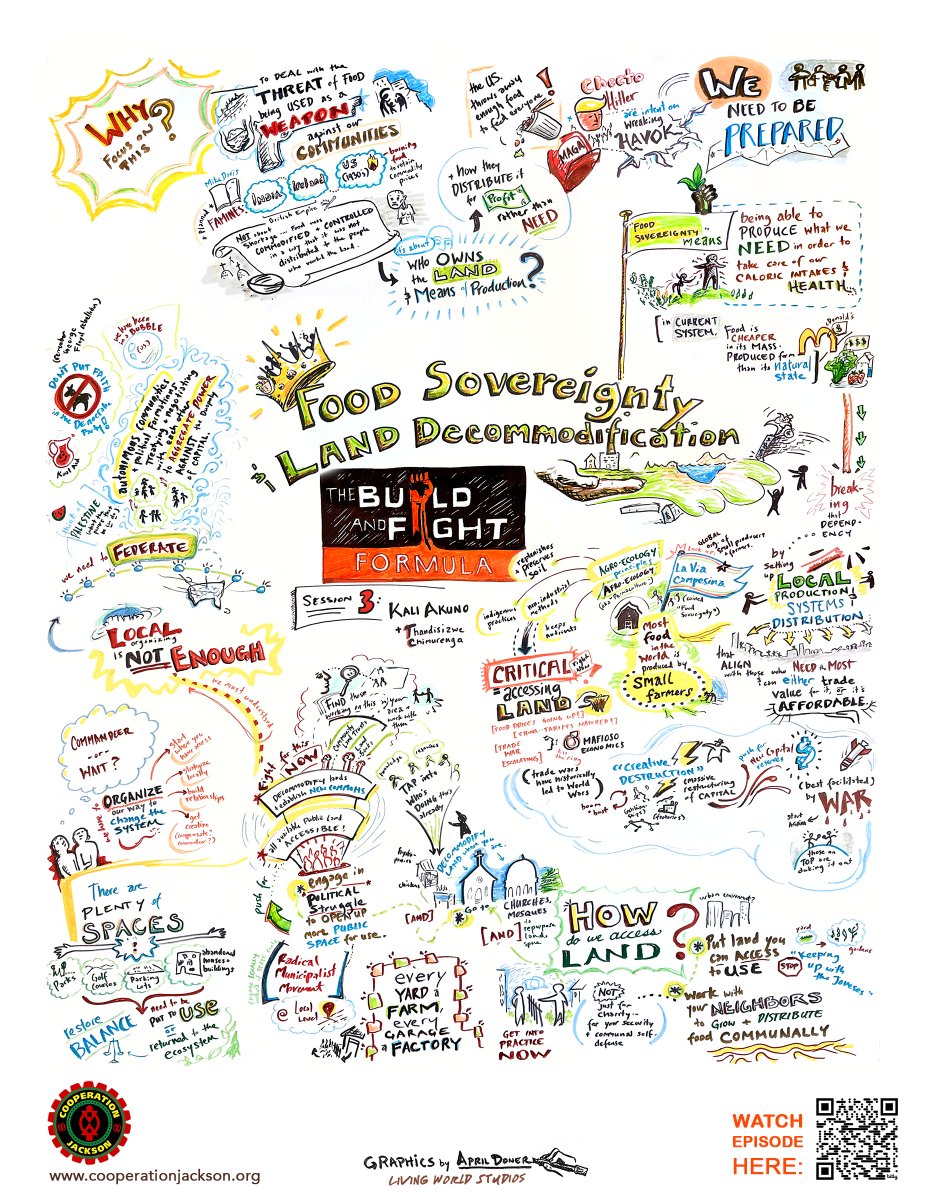 WHY
Focus on
THIS
?
TO DEAL with the
THREAT of FOOD
being USED as a
WEAPON
against our
COMMUNITIES
Mike Davis
Planned
FAMINES:
India
Ireland
US
(1930s)
burning
food
to retain
commodity
prices
British Empire
NOT about
Shortage... Food was
COMMODIFIED & CONTROLLED
in a way that it was not
distributed to the people
who worked the land.
it's about
WHO OWNS
the LAND
& Means of Production?
+ How they
DISTRIBUTE it
for Profit
rather than
NEED
the U.S.
throws away
enough food
to feed everyone!
Cheeto
Hitler
MAGA
are intent on
wreaking
HAVOK
WE
NEED TO BE
PREPARED
FOOD
SOVEREIGNTY
means
being able to
PRODUCE what we
NEED in order to
take care of our
CALORIC INTAKES &
HEALTH
[in CURRENT
SYSTEM,
Food is
CHEAPER
in its MASS-
PRODUCED form
than its natural
state
McDonald's
$$$
break-
ing
that
DEPEND-
ENCY
by
setting
up
LOCAL
PRODUCTION
SYSTEMS
DISTRIBUTION
that
ALIGN
with those who NEED it MOST
& can either trade
value for it, or it's
AFFORDABLE
(remember
George
Floyd Rebellion)
we have been
in a BUBBLE
DON'T PUT FAITH
in the Democratic
Party!
Kool Aid
autonomous communities
& political formations
Treatying & negotiating
with each other
AGGREGATE POWER
AGAINST the Dictatorship
of CAPITAL
PALESTINE
we need to
FEDERATE
LOCAL
organizing
is NOT ENOUGH
we must understand
FOOD Sovereignty
& LAND Decommodification
THE BUILD
AND FIGHT
FORMULA
SESSION 3:
KALI AKUNO
+ Thandisizwe
Chimurenga
replenishes
& preserves
soil
non-industrial
methods
indigenous
practices
keeps
nutrients
AGRO-ECOLOGY
principles
AFRO-ECOLOGY
Look up:
La Via
Campesina
GLOBAL
org. of
small producers
& farmers
(coined
"Food
Sovereignty")
Most
food
in the
World is
produced by
Small
farmers
CRITICAL
right now
= accessing
LAND
[FOOD PRICES GOING UP!]
[CHINA - TARIFFS MATCHED!]
[TRADE
WAR
ESCALATING]
MAFIOSO
ECONOMICS
(trade wars
have historically
led to World
Wars)
"Creative
DESTRUCTION"
(massive
restructuring
of CAPITAL)
boom
+ bust
(factories)
push for
new
reserves
Capital
(best facilitated)
by WAR
start
again
those on
TOP are
duking it out
COMMANDEER
-or-
WAIT?
ORGANIZE
our way to
change the
SYSTEM
find
where you
have access
strategize
locally
build
relationships
get
creative
(compensate?
commandeer?)
There are
PLENTY of
SPACES
Parks
Golf
courses
Parking
Lots
abandoned
houses +
buildings
need to be
PUT TO USE
or
returned to the
ecosystem
restore
BALANCE
FIND those
working on this in your
area +
work with
them
Fight for this
NOW
DECOMMODIFY lands
& establish NEW COMMONS
all available Public Land
ACCESSIBLE!
push for
engage in
"POLITICAL
Struggle"
to OPEN UP
more PUBLIC
SPACE for use.
Radical
Municipalist
Movement
@ Local
Level
knowledge
resources
TAP into
Who's
DOING this
already
hydro-
ponics
chickens
DECOMMODIFY
LAND where you are
[AND]
Go to
CHURCHES,
MOSQUES
[AND]
to
repurpose
land &
space
every
YARD a
FARM,
every
GARAGE
a FACTORY
HOW
do we access
LAND?
urban environment?
Put land you
can ACCESS
to USE
yard
gardens
STOP
"keeping
up with
the Joneses"
work with
your NEIGHBORS
to Grow + DISTRIBUTE
food COMMUNALLY
NOT
just for
charity...
for your security
+ communal self-
defense
GET INTO
PRACTICE
NOW
COOPERATION
JACKSON
www.cooperationjackson.org
GRAPHICS by APRIL DONER
LIVING WORLD STUDIOS
WATCH
EPISODE
HERE: